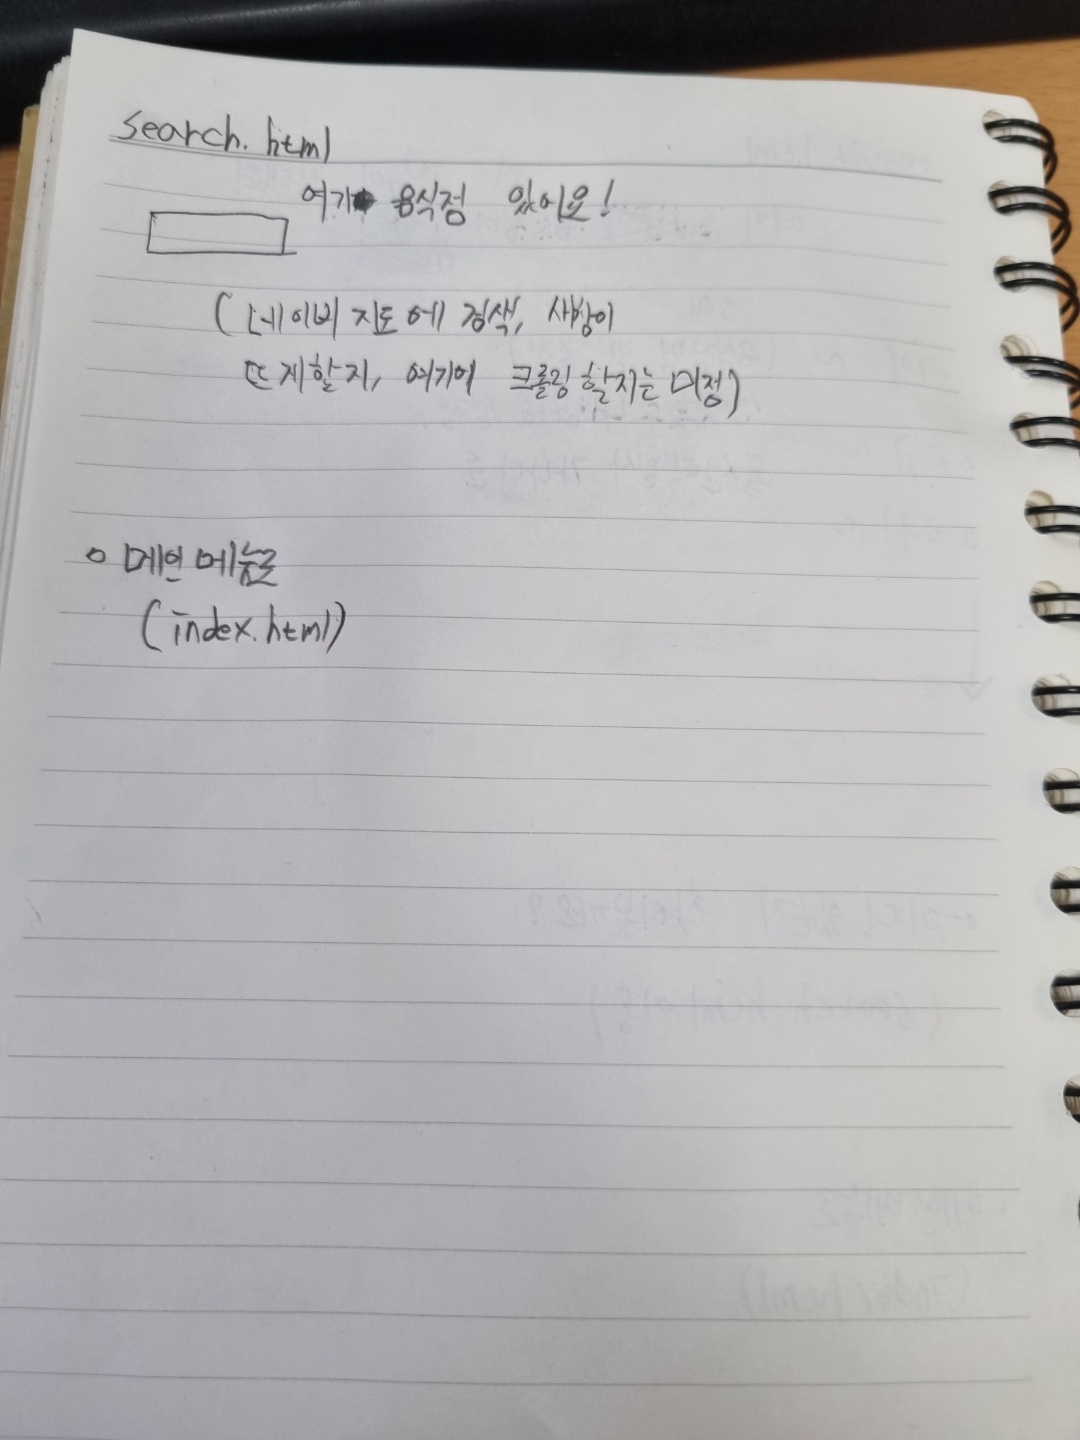 search.html
여기 음식점 있어요!
(네이버 지도에 검색, 사상이
뜨게할지, 여기에 크롤링 할지는 미정)
o 메인 메뉴로
(index.html)